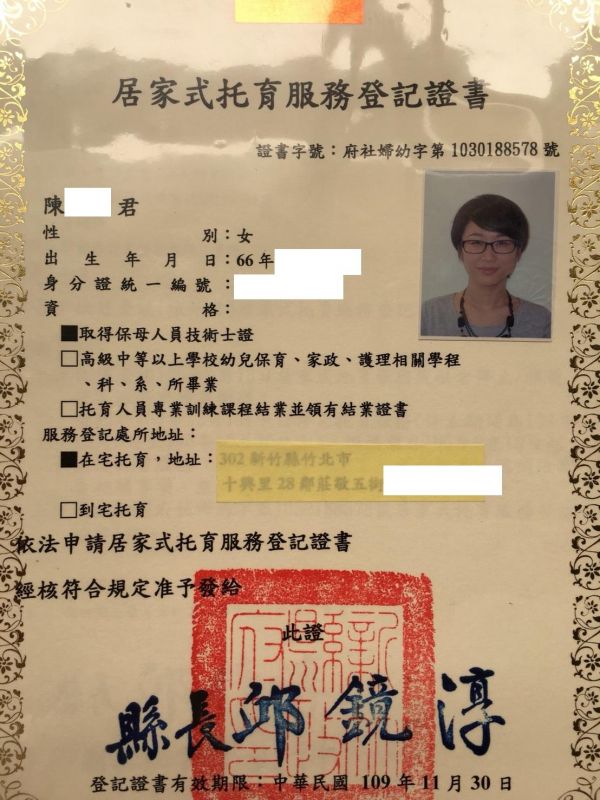 居家式托育服務登記證書
證書字號：府社婦幼字第1030188578號
陳 君
性 別：女
出生年月日：66年
身分證統一編號：
資 格：
■取得保母人員技術士證
□高級中等以上學校幼兒保育、家政、護理相關學程
、科、系、所畢業
□托育人員專業訓練課程結業並領有結業證書
服務登記處所地址：
■在宅托育，地址：302新竹縣竹北市
十興里28鄰莊敬五街
□到宅托育
依法申請居家式托育服務登記證書
經核符合規定准予發給
此證
縣長邱鏡淳
登記證書有效期限：中華民國 109年11月30日